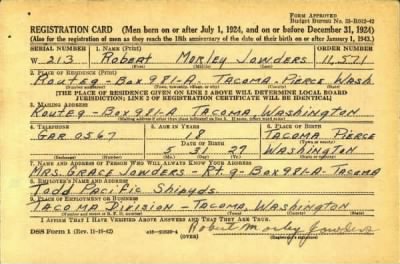 FORM APPROVED
Budget Bureau No. 33-R012-42
REGISTRATION CARD—(Men born on or after July 1, 1924, and on or before December 31, 1924)
(Also for the registration of men as they reach the 18th anniversary of the date of their birth on or after January 1, 1943.)
SERIAL NUMBER 1. NAME (Print) ORDER NUMBER
W 213 Robert Morley Jowders 11,571
2. PLACE OF RESIDENCE (Print)
Route 9 - Box 981-A. Tacoma - Pierce Wash.
[THE PLACE OF RESIDENCE GIVEN ON LINE 2 ABOVE WILL DETERMINE LOCAL BOARD
JURISDICTION; LINE 2 OF REGISTRATION CERTIFICATE WILL BE IDENTICAL]
3. MAILING ADDRESS
Route 9 - Box 981-A Tacoma Washington
4. TELEPHONE 5. AGE IN YEARS 6. PLACE OF BIRTH
GAR 0567 18 Tacoma Pierce
DATE OF BIRTH
5 31 27 Washington
7. NAME AND ADDRESS OF PERSON WHO WILL ALWAYS KNOW YOUR ADDRESS
Mrs. Grace Jowders - Rt. 9 - Box 981-A - Tacoma
8. EMPLOYER'S NAME AND ADDRESS
Todd Pacific Shipyds.
9. PLACE OF EMPLOYMENT OR BUSINESS
Tacoma Division - Tacoma, Washington
I AFFIRM THAT I HAVE VERIFIED ABOVE ANSWERS AND THAT THEY ARE TRUE.
DSS Form 1 (Rev. 11-16-42) (OVER) Robert Morley Jowders
(Registrant's signature)